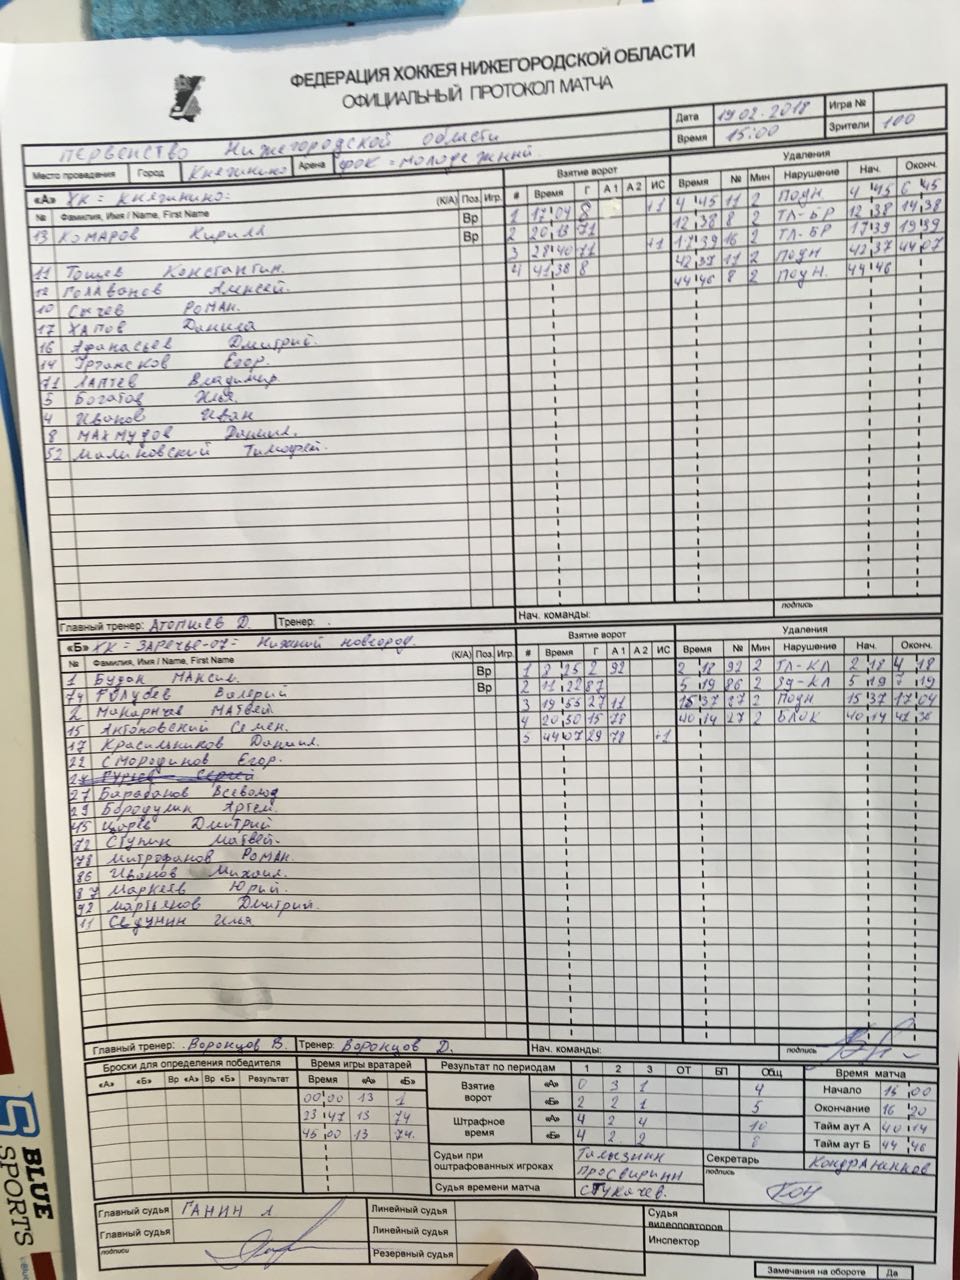 ФЕДЕРАЦИЯ ХОККЕЯ НИЖЕГОРОДСКОЙ ОБЛАСТИ
ОФИЦИАЛЬНЫЙ ПРОТОКОЛ МАТЧА
Дата 19.02.2018 Игра №
Время 15:00 Зрители 100
Первенство Нижегородской области
Место проведения Город Княгинино Арена ФОК = Молодежный
«А» ХК = Княгинино = (К/А) Поз. Игр. Взятие ворот Удаления
№ Фамилия, Имя / Name, First Name Вр # Время Г А1 А2 ИС Время № Мин Нарушение Нач. Оконч.
13 Комаров Кирилл Вр 1 17 04 8 +1 4 45 11 2 Подн 4 45 6 45
2 20 13 71 12 38 8 2 Тл-Бр 12 38 14 38
3 28 40 71 +1 17 39 16 2 Тл-Бр 17 39 19 39
11 Тощев Константин. 4 41 38 8 42 37 11 2 Подн 42 37 44 07
12 Алексей. 44 46 8 2 Подн. 44 46
10 Сычев Роман.
17 Хапов Данила
16 Афанасьев Дмитрий.
14 Егор.
71 Лаптев Владимир.
5 Богатов Илья.
4 Иванов Иван
8 Махмудов Даниил.
52 Малиновский Тимофей.
Главный тренер: Д. Тренер: Нач. команды: подпись
«Б» ХК = Заречье-07 = Нижний Новгород. (К/А) Поз. Игр. Взятие ворот Удаления
№ Фамилия, Имя / Name, First Name # Время Г А1 А2 ИС Время № Мин Нарушение Нач. Оконч.
1 Будак Максим. Вр 1 2 25 2 92 2 18 92 2 Тл-Кл 2 18 4 18
74 Голубев Валерий Вр 2 11 22 87 5 19 86 2 Зд-Кл 5 19 7 19
2 Матвей 3 19 55 27 11 15 37 87 2 Подн 15 37 17 04
15 Антоновский Семен. 4 20 30 15 78 40 14 27 2 Блок 40 14 41 38
17 Красильников Даниил. 5 44 07 29 78 +1
22 Смородинов Егор.
Сергей
27 Барабанов Всеволод
29 Бородулин Артем.
45 Дмитрий
72 Ступин Матвей.
78 Митрофанов Роман.
86 Иванов Михаил.
87 Маркеев Юрий.
92 Мартьянов Дмитрий.
11 Седунин Илья
Главный тренер: Воронцов В. Тренер: Воронцов Д. Нач. команды: подпись
Броски для определения победителя Время игры вратарей Результат по периодам 1 2 3 ОТ БП Общ Время матча
«А» «Б» Вр «А» Вр «Б» Результат Время «А» «Б» Взятие ворот «А» 0 3 1 4 Начало 15 00
00 00 13 1 «Б» 2 2 1 5 Окончание 16 20
23 47 13 74 Штрафное время «А» 4 2 4 10 Тайм аут А 40 14
45 00 13 74. «Б» 4 2 2 8 Тайм аут Б 44 46
Судьи при оштрафованных игроках Талызин Секретарь Кондрашкинков
Просвирин подпись
Судья времени матча Стукачев.
Главный судья Ганин Л Линейный судья Судья видеоповторов
Главный судья Линейный судья Инспектор
подписи Резервный судья
Замечания на обороте Да
BLUE
SPORTS